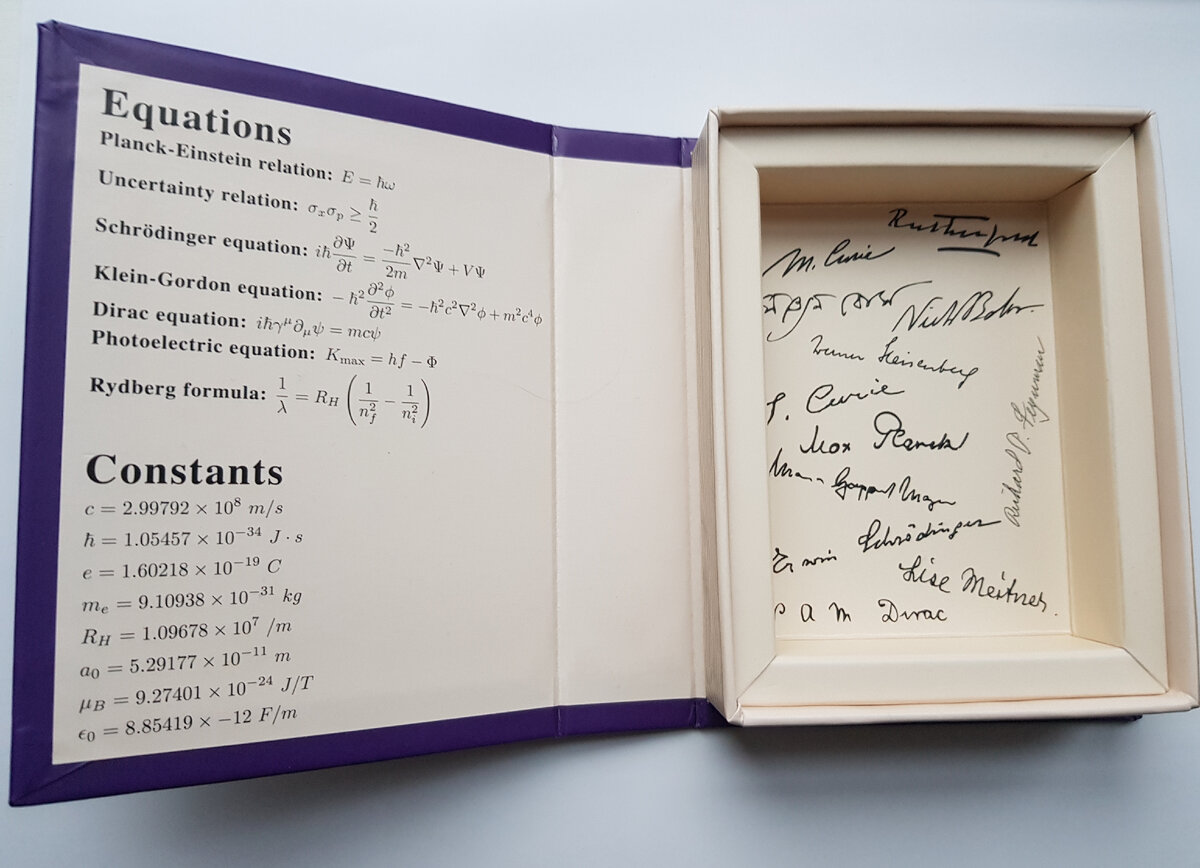 Equations
Planck-Einstein relation: E = ℏω
Uncertainty relation: σₓσₚ ≥ ℏ/2
Schrödinger equation: iℏ ∂Ψ/∂t = −ℏ²/2m ∇²Ψ + VΨ
Klein-Gordon equation: −ℏ² ∂²ϕ/∂t² = −ℏ²c²∇²ϕ + m²c⁴ϕ
Dirac equation: iℏγ^μ∂_μψ = mcψ
Photoelectric equation: K_max = hf − Φ
Rydberg formula: 1/λ = R_H (1/n_f² − 1/n_i²)
Constants
c = 2.99792 × 10⁸ m/s
ℏ = 1.05457 × 10⁻³⁴ J · s
e = 1.60218 × 10⁻¹⁹ C
mₑ = 9.10938 × 10⁻³¹ kg
R_H = 1.09678 × 10⁷ /m
a₀ = 5.29177 × 10⁻¹¹ m
μ_B = 9.27401 × 10⁻²⁴ J/T
ϵ₀ = 8.85419 × −12 F/m
Rutherford
M. Curie
Niels Bohr
Werner Heisenberg
P. Curie
Max Planck
Maria Goeppert Mayer
Richard P. Feynman
Erwin Schrödinger
Lise Meitner.
P A M Dirac